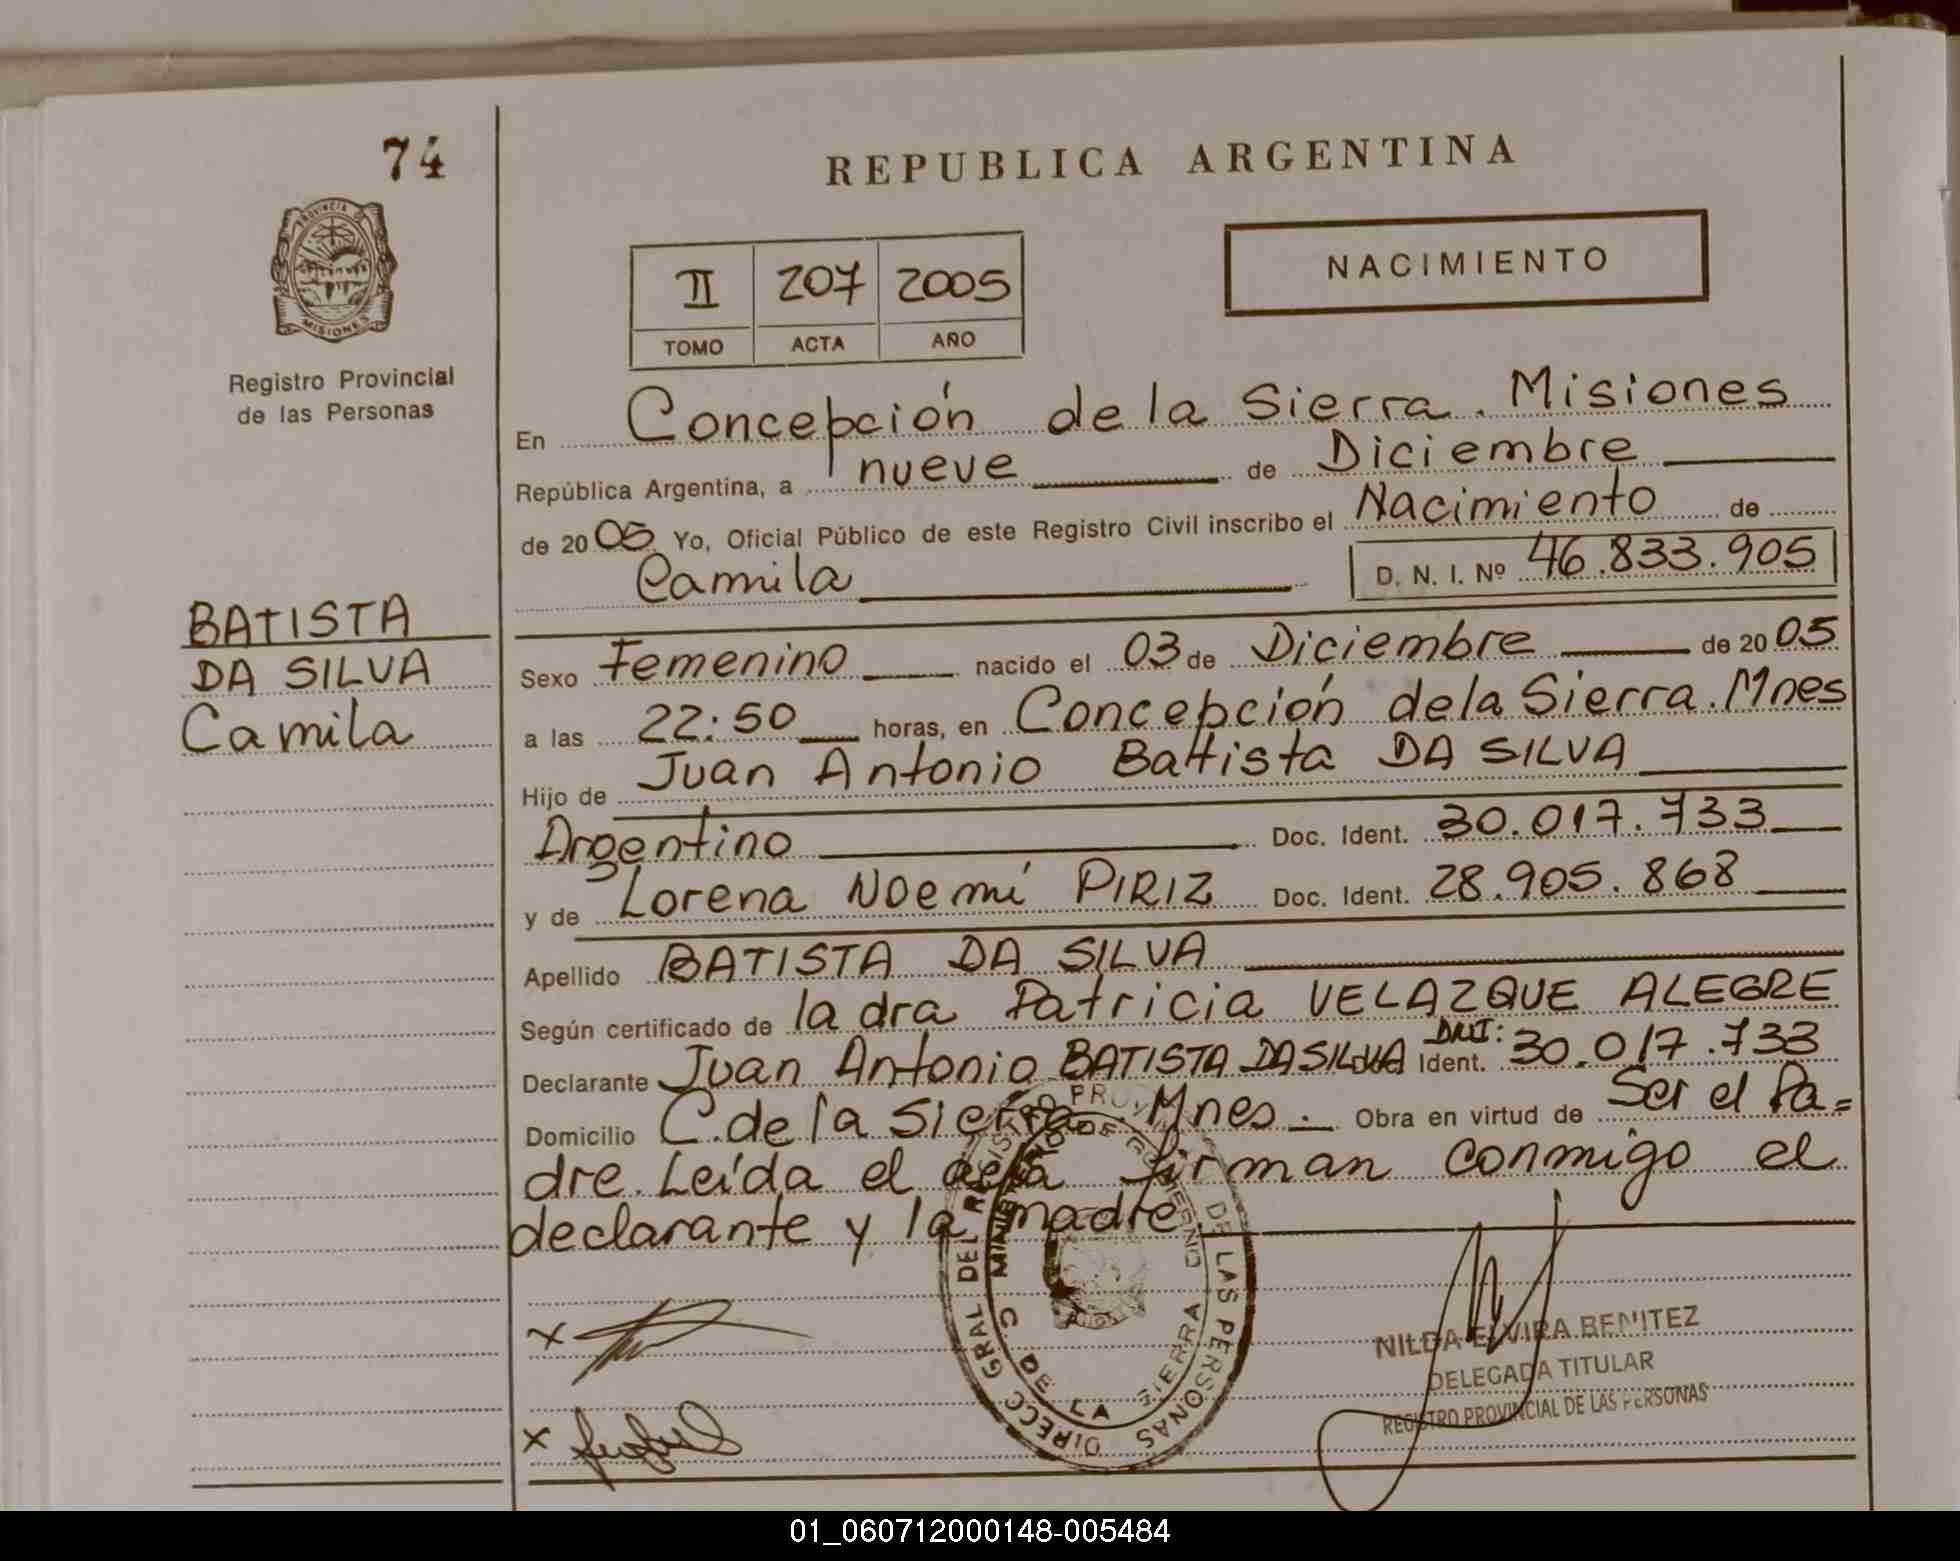 74
REPUBLICA ARGENTINA
PROVINCIA DE
MISIONES
Registro Provincial
de las Personas
II 207 2005
TOMO ACTA AÑO
NACIMIENTO
En Concepción de la Sierra. Misiones
República Argentina, a nueve de Diciembre
de 2005 Yo, Oficial Público de este Registro Civil inscribo el Nacimiento de
Camila D. N. I. Nº 46.833.905
BATISTA
DA SILVA
Camila
Sexo Femenino nacido el 03 de Diciembre de 2005
a las 22:50 horas, en Concepción de la Sierra. Mnes
Hijo de Juan Antonio Battista DA SILVA
Argentino Doc. Ident. 30.017.733
y de Lorena Noemí PIRIZ Doc. Ident. 28.905.868
Apellido BATISTA DA SILVA
Según certificado de la dra Patricia VELAZQUE ALEGRE
Declarante Juan Antonio BATISTA DA SILVA DNI: Ident. 30.017.733
Domicilio C. de la Sierra Mnes. Obra en virtud de Ser el Pa=
dre. Leída el acta firman conmigo el
declarante y la madre
x
x
DIRECC GRAL DEL REGISTRO PROV. DE LAS PERSONAS
MINISTERIO DE GOBIERNO
C. DE LA SIERRA
NILDA ELVIRA BENITEZ
DELEGADA TITULAR
REGISTRO PROVINCIAL DE LAS PERSONAS
01_060712000148-005484